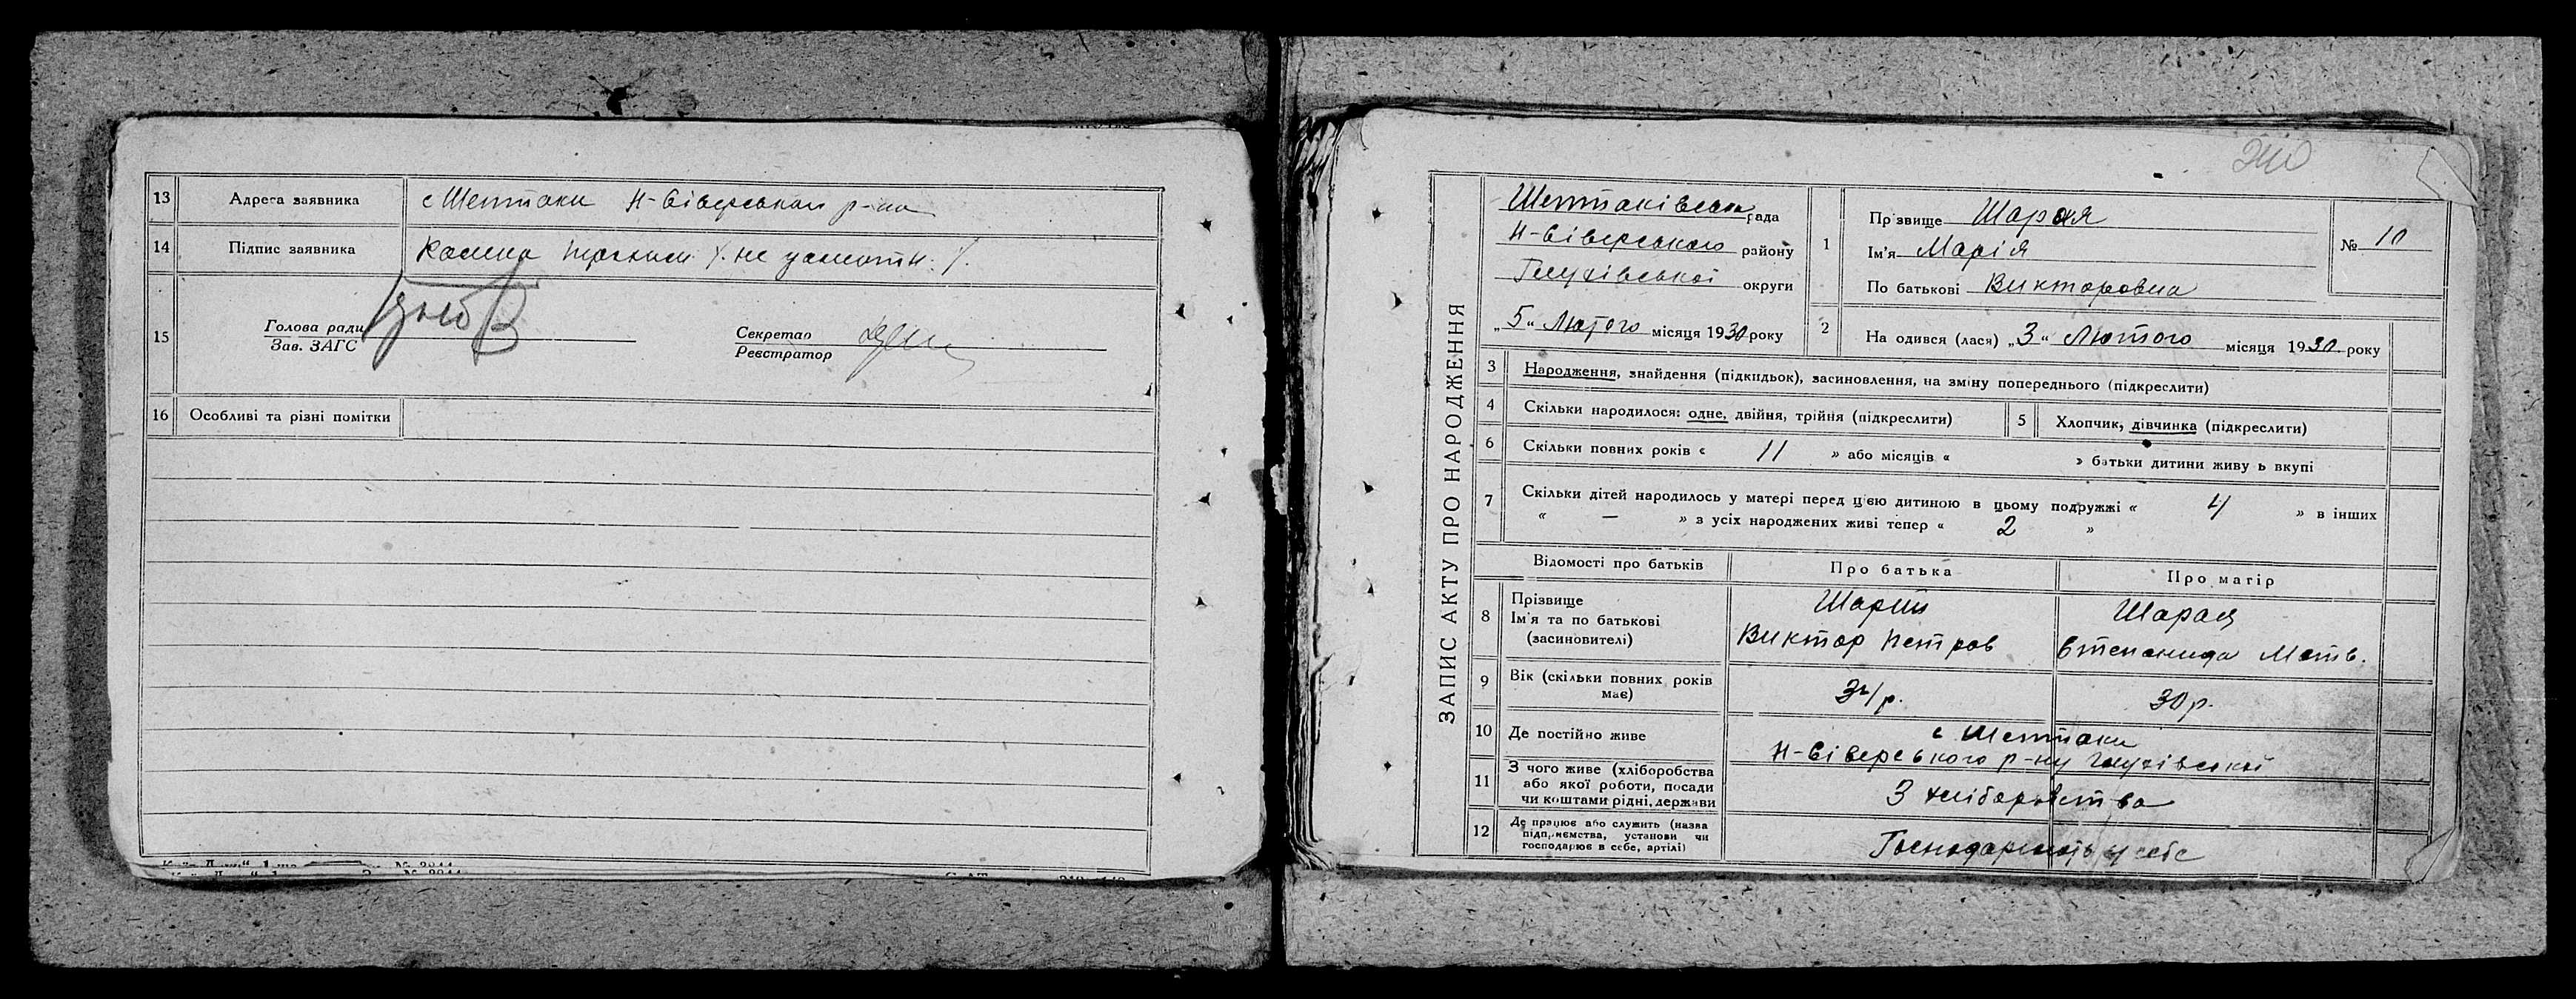 13 Адреса заявника с Шептаки Н-Сіверського р-на
14 Підпис заявника не грамотн.
15 Голова ради
Зав. ЗАГС
Секретар
Реєстратор
16 Особливі та різні помітки
ЗАПИС АКТУ ПРО НАРОДЖЕННЯ
Шептаківська рада
Н-Сіверського району
Глухівської округи
„5“ Лютого місяця 1930 року
1 Прізвище Шарая
Ім'я Марія
По батькові Викторовна
№ 10
2 На одився (лася) „3“ Лютого місяця 1930 року
3 Народження, знайдення (підкидьок), засиновлення, на зміну попереднього (підкреслити)
4 Скільки народилося: одне, двійня, трійня (підкреслити)
5 Хлопчик, дівчинка (підкреслити)
6 Скільки повних років « 11 » або місяців « » батьки дитини живу ь вкупі
7 Скільки дітей народилось у матері перед цією дитиною в цьому подружжі « 4 » в інших
« — » з усіх народжених живі тепер « 2 »
Відомості про батьків Про батька Про матір
8 Прізвище
Ім'я та по батькові
(засиновителі)
Шарий
Виктор Петров
Шарая
Степанида Матв.
9 Вік (скільки повних років
має)
34 р. 30 р.
10 Де постійно живе
с Шептаки
Н-Сіверського р-ну Глухівської
11 З чого живе (хліборобства
або якої роботи, посади
чи коштами рідні, держави
З хліборобства
12 Де працює або служить (назва
підприємства, установи чи
господарює в себе, артілі)
Господарюють у себе